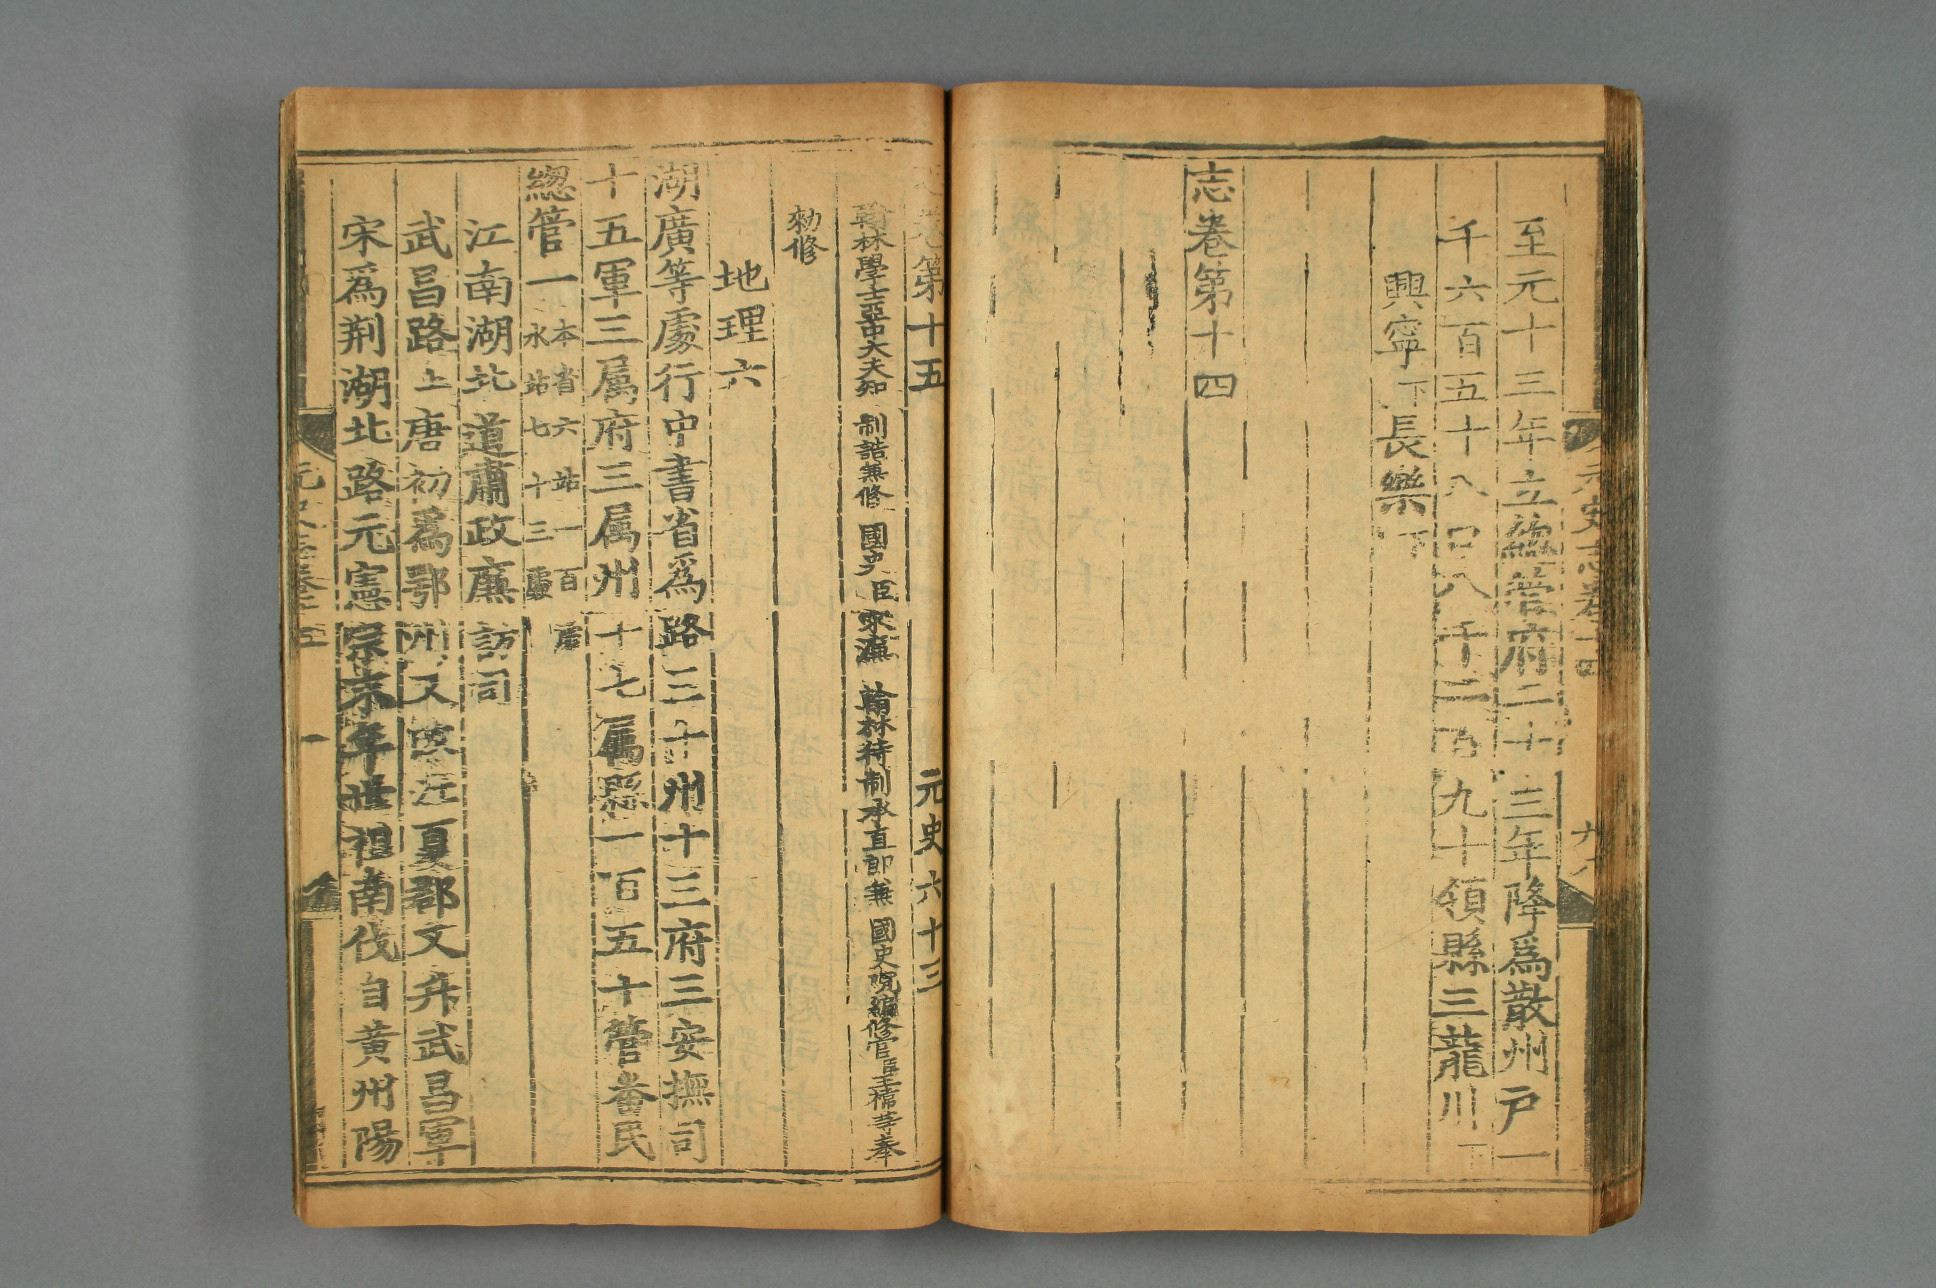 至元十三年立總管府二十三年降爲散州戶一
千六百五十八口八千二百九十領縣三龍川下
興寧下長樂下
志卷第十四
志卷第十五 元史六十三
翰林學士亞中大夫知 制誥兼修 國史臣宋濂 翰林待制承直郎兼 國史院編修官臣王禕等奉
勑修
地理六
湖廣等處行中書省爲路三十州十三府三安撫司
十五軍三属府三属州十七属縣一百五十管番民
總管一本省六站一百處
水站七十三處
江南湖北道肅政廉訪司
武昌路上唐初爲鄂州又改江夏郡又升武昌軍
宋爲荆湖北路元憲宗末年世祖南伐自黄州陽
元史志卷十五
一